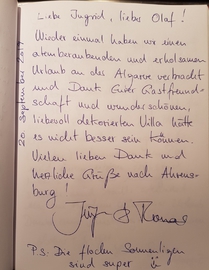 Liebe Ingrid, liebe Olaf !
Wieder einmal haben wir einen
atemberaubenden und erholsamen
Urlaub an der Algarve verbracht
und Dank Eurer Gastfreund-
schaft und wunderschönen,
liebevoll dekorierten Villa hätte
es nicht besser sein können.
Vielen lieben Dank und
herzliche Grüße nach Ahrens-
burg !
Jürg & Thomas
P.S. Die flachen Sonnenliegen
sind super
20 September 2017